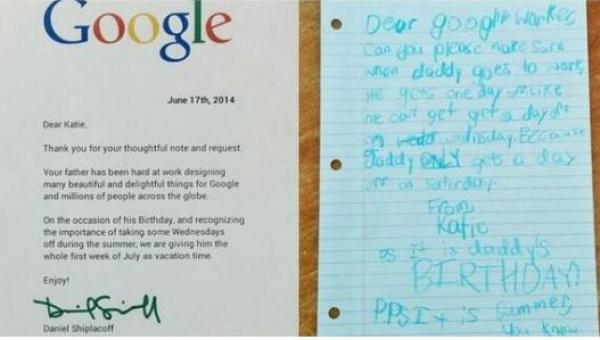 Google
June 17th, 2014
Dear Katie,
Thank you for your thoughtful note and request.
Your father has been hard at work designing
many beautiful and delightful things for Google
and millions of people across the globe.
On the occasion of his Birthday, and recognizing
the importance of taking some Wednesdays
off during the summer, we are giving him the
whole first week of July as vacation time.
Enjoy!
Daniel Shiplacoff
Dear google worker,
Can you please make sure
when daddy goes to work,
He gets one day off. Like
he can get get a day off
on wednesday. Because
daddy ONLY gets a day
off on saturday.
From,
Katie
P.S. It is daddy's
BIRTHDAY!
P.P.S. It is summer,
you know